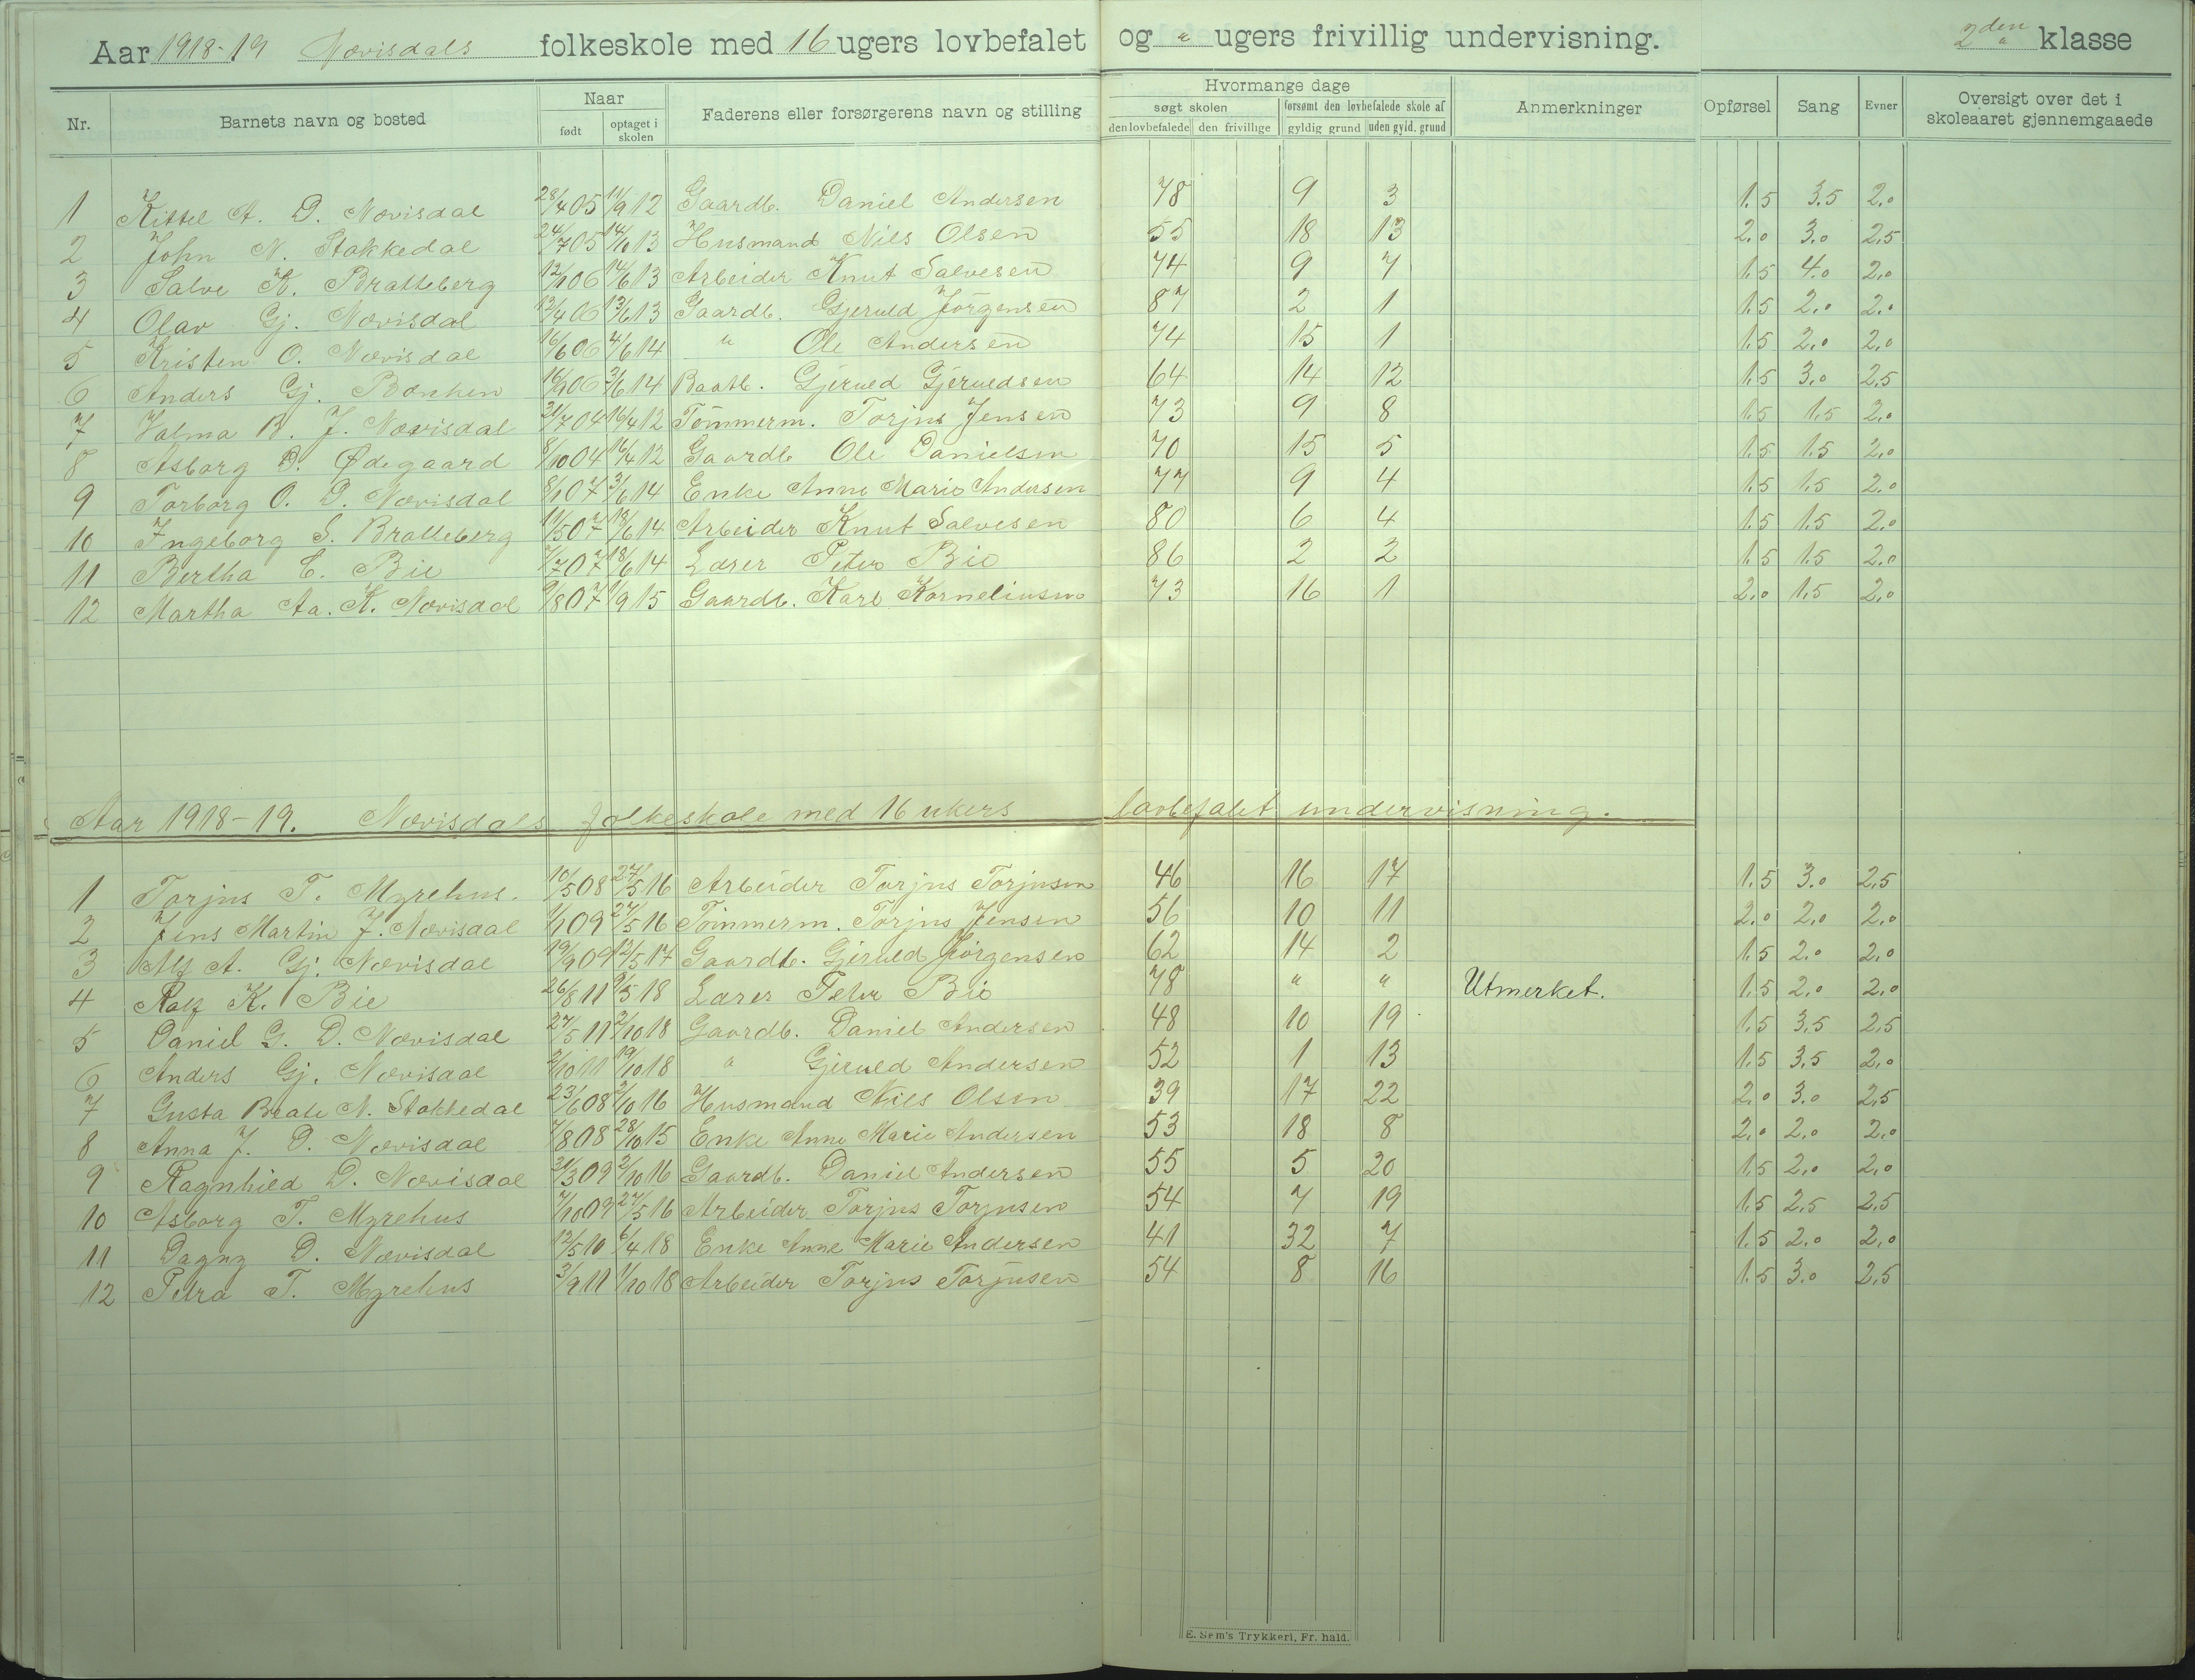 Aar 1918-19 Nævisdals folkeskole med 16 ugers lovbefalet og " ugers frivillig undervisning. 2den klasse
Nr. Barnets navn og bosted Naar født optaget i skolen Faderens eller forsørgerens navn og stilling Hvormange dage søgt skolen den lovbefalede den frivillige forsømt den lovbefalede skole af gyldig grund uden gyld. grund Anmerkninger Opførsel Sang Evner Oversigt over det i skoleaaret gjennemgaaede
1 Kittel A. D. Nævisdal 28/4 05 11/9 12 Gaardb. Daniel Andersen 78 9 3 1.5 3.5 2.0
2 John N. Stakkedal 24/7 05 14/10 13 Husmand Nils Olsen 55 18 13 2.0 3.0 2.5
3 Salve K. Bratteberg 12/1 06 14/6 13 Arbeider Knut Salvesen 74 9 7 1.5 4.0 2.0
4 Olav Gj. Nævisdal 12/4 06 13/6 13 Gaardb. Gjeruld Jörgensen 87 2 1 1.5 2.0 2.0
5 Kristen O. Nævisdal 16/6 06 4/6 14 " Ole Andersen 74 15 1 1.5 2.0 2.0
6 Anders Gj. 16/9 06 3/6 14 Gjeruld Gjeruldsen 64 14 12 1.5 3.0 2.5
7 Valma B. J. Nævisdal 21/7 04 16/4 12 Tömmerm. Torjus Jensen 73 9 8 1.5 1.5 2.0
8 Asborg D. Ødegaard 8/10 04 16/4 12 Gaardb Ole Danielsen 70 15 5 1.5 1.5 2.0
9 Torborg O. D. Nævisdal 8/1 07 3/6 14 Enke Anne Marie Andersen 77 9 4 1.5 1.5 2.0
10 Ingeborg S. Bratteberg 11/5 07 18/6 14 Arbeider Knut Salvesen 80 6 4 1.5 1.5 2.0
11 Bertha C. Bie 7/7 07 18/6 14 Lærer Peter Bie 86 2 2 1.5 1.5 2.0
12 Martha Aa. K. Nævisdal 9/8 07 1/9 15 Gaardb. Karl Korneliusen 73 16 1 2.0 1.5 2.0
Aar 1918-19. Nævisdals folkeskole med 16 ukers lovbefalet undervisning.
1 Torjus T. Myrehus. 10/5 08 27/5 16 Arbeider Torjus Torjusen 46 16 17 1.5 3.0 2.5
2 Jens Martin J. Nævisdal 1/1 09 27/5 16 Tömmerm. Torjus Jensen 56 10 11 2.0 2.0 2.0
3 Alf A. Gj. Nævisdal 19/9 09 12/5 17 Gaardb. Gjeruld Jörgensen 62 14 2 1.5 2.0 2.0
4 Ralf K. Bie 26/8 11 9/5 18 Lærer Peter Bie 78 " " Utmerket. 1.5 2.0 2.0
5 Daniel G. D. Nævisdal 27/5 11 2/10 18 Gaardb. Daniel Andersen 48 10 19 1.5 3.5 2.5
6 Anders Gj. Nævisdal 2/10 11 19/10 18 " Gjeruld Andersen 52 1 13 1.5 3.5 2.0
7 Gusta Beate N. Stakkedal 23/6 08 2/10 16 Husmand Nils Olsen 39 17 22 2.0 3.0 2.5
8 Anna J. D. Nævisdal 7/8 08 28/10 15 Enke Anne Marie Andersen 53 18 8 2.0 2.0 2.0
9 Ragnhild D. Nævisdal 31/3 09 2/10 16 Gaardb. Daniel Andersen 55 5 20 1.5 2.0 2.0
10 Asborg T. Myrehus 7/10 09 27/5 16 Arbeider Torjus Torjusen 54 7 19 1.5 2.5 2.5
11 Dagny D. Nævisdal 12/5 10 6/4 18 Enke Anne Marie Andersen 41 32 7 1.5 2.0 2.0
12 Petra T. Myrehus 3/9 11 1/10 18 Arbeider Torjus Torjusen 54 8 16 1.5 3.0 2.5
E. Sem's Trykkeri, Fr. hald.